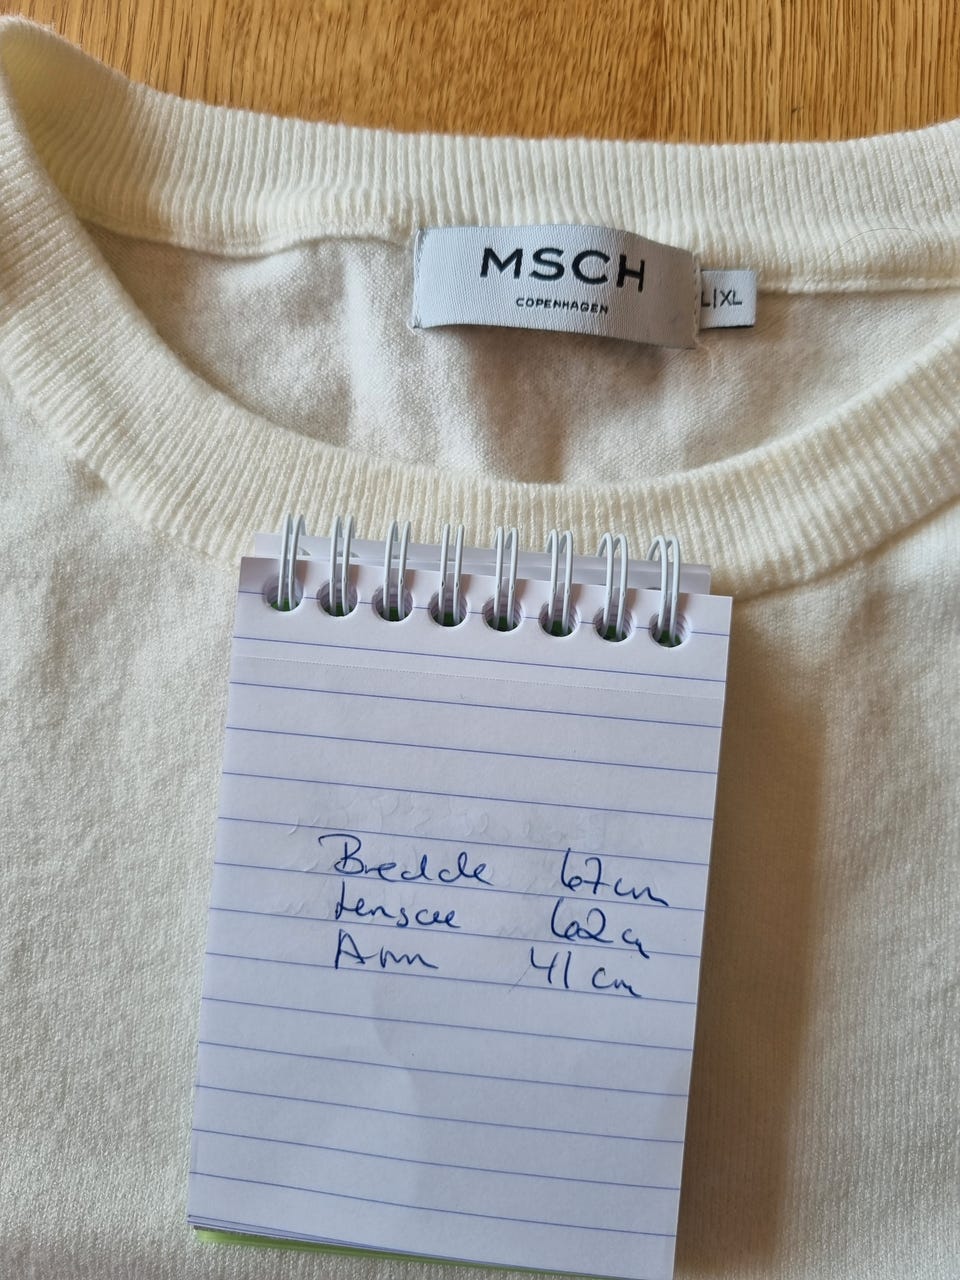 MSCH
COPENHAGEN
L|XL
Bredde 67 cm
62 c
Arm 41 cm